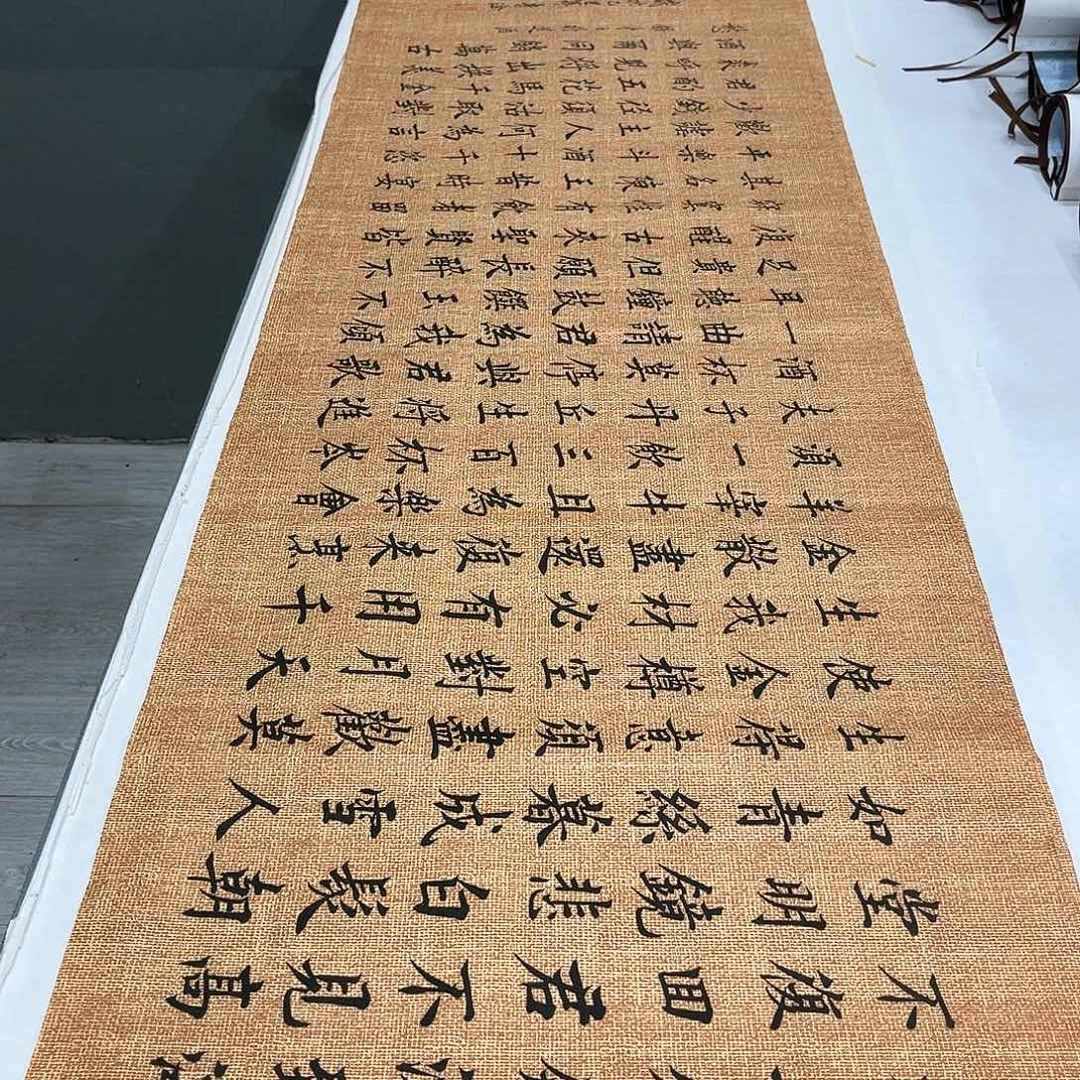 不復回君不見高
堂明鏡悲白髮朝
如青絲暮成雪人
生得意須盡歡莫
使金樽空對月天
生我材必有用千
金散盡還復来烹
羊宰牛且為樂會
須一飲三百杯岑
夫子丹丘生將進
酒杯莫停與君歌
一曲請君為我傾
耳聽鐘鼓饌玉不
足貴但願長醉不
復醒古来聖賢皆
寂寞惟有飲者留
其名陳王昔時宴
平樂斗酒十千恣
歡謔主人何為言
少錢徑須沽取對
君酌五花馬千金
裘呼兒將出換美
酒與爾同銷萬古
愁